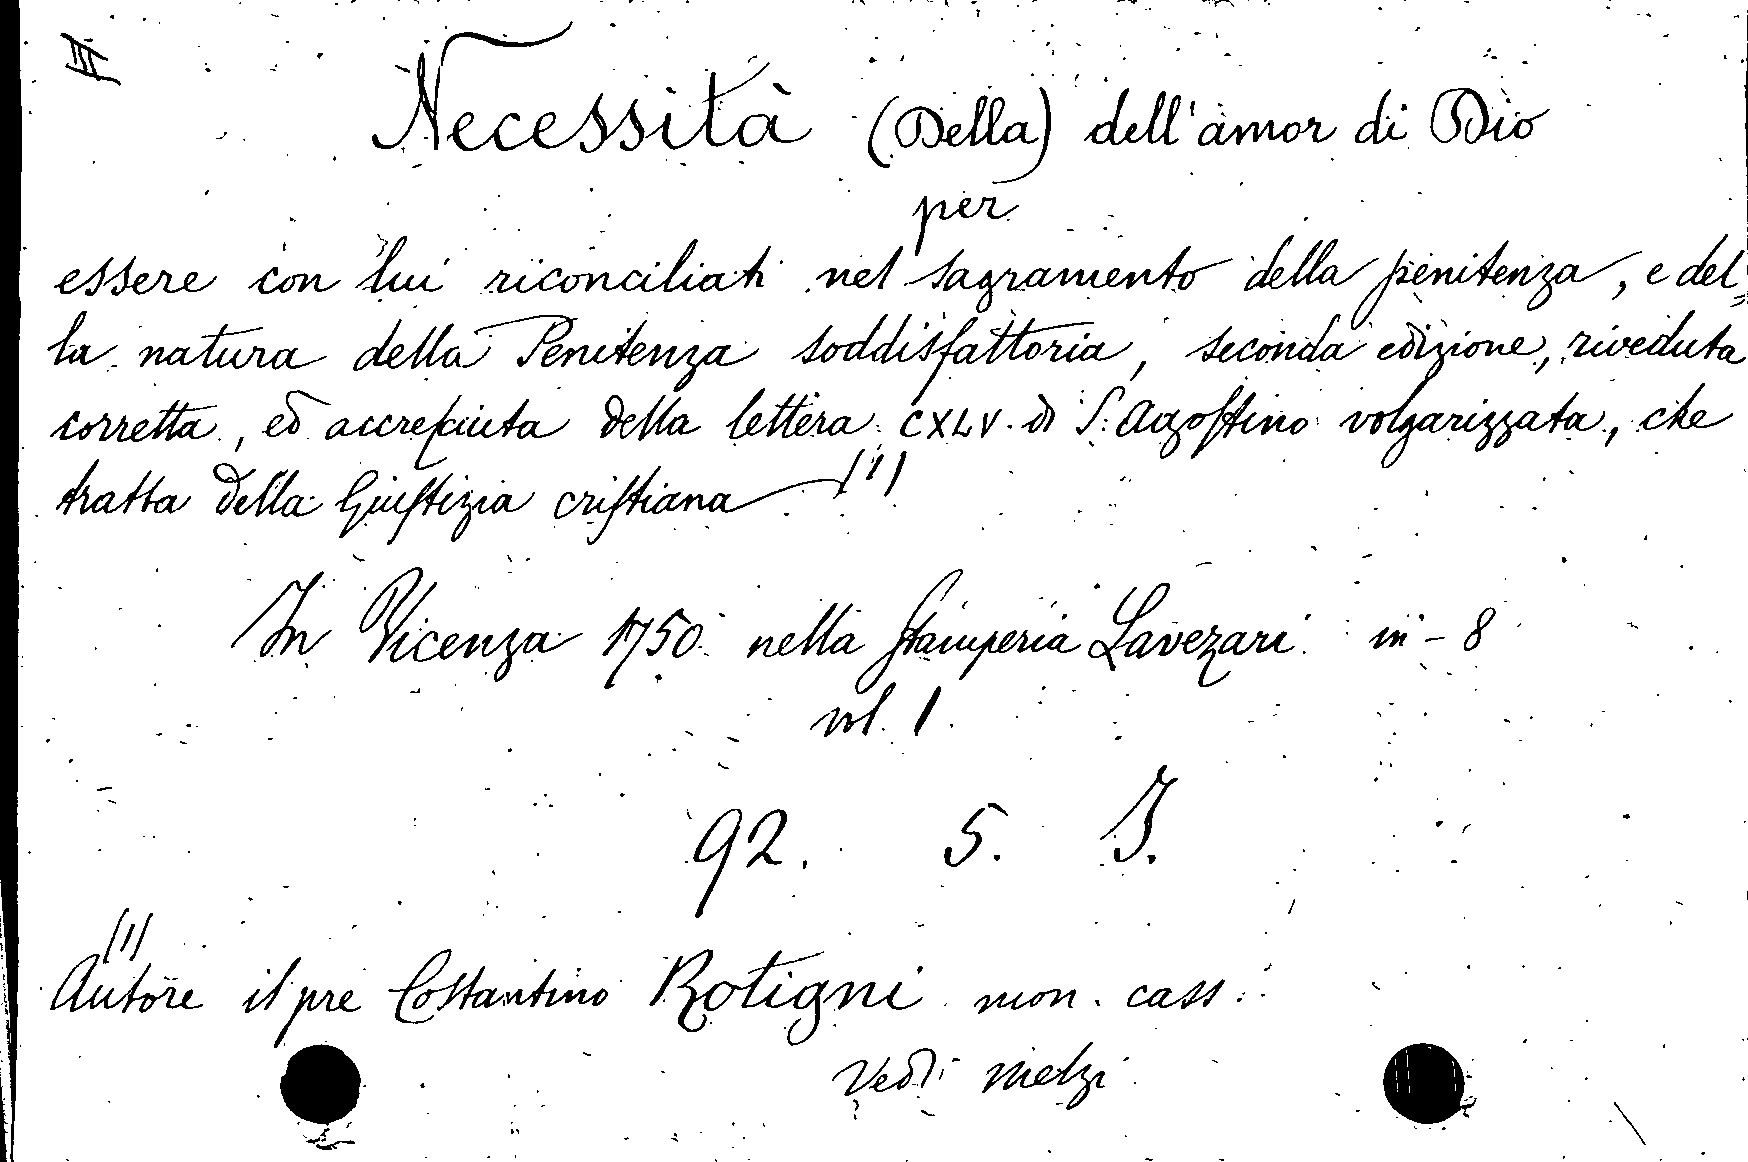 III
Necessità (Della) dell'amor di Dio
per
essere con lui riconciliati nel sagramento della penitenza, e del,,
la natura della Penitenza soddisfattoria, seconda edizione, riveduta
corretta, ed accresciuta della lettera CXLV. di S. Agostino volgarizzata, che
tratta della Giustizia cristiana (1)
In Vicenza 1750 nella Stamperia Lavezari in-8
vol. 1.
92. 5. I.
(1)
Autore il pre Costantino Rotigni mon. cass.
Vedi Melzi